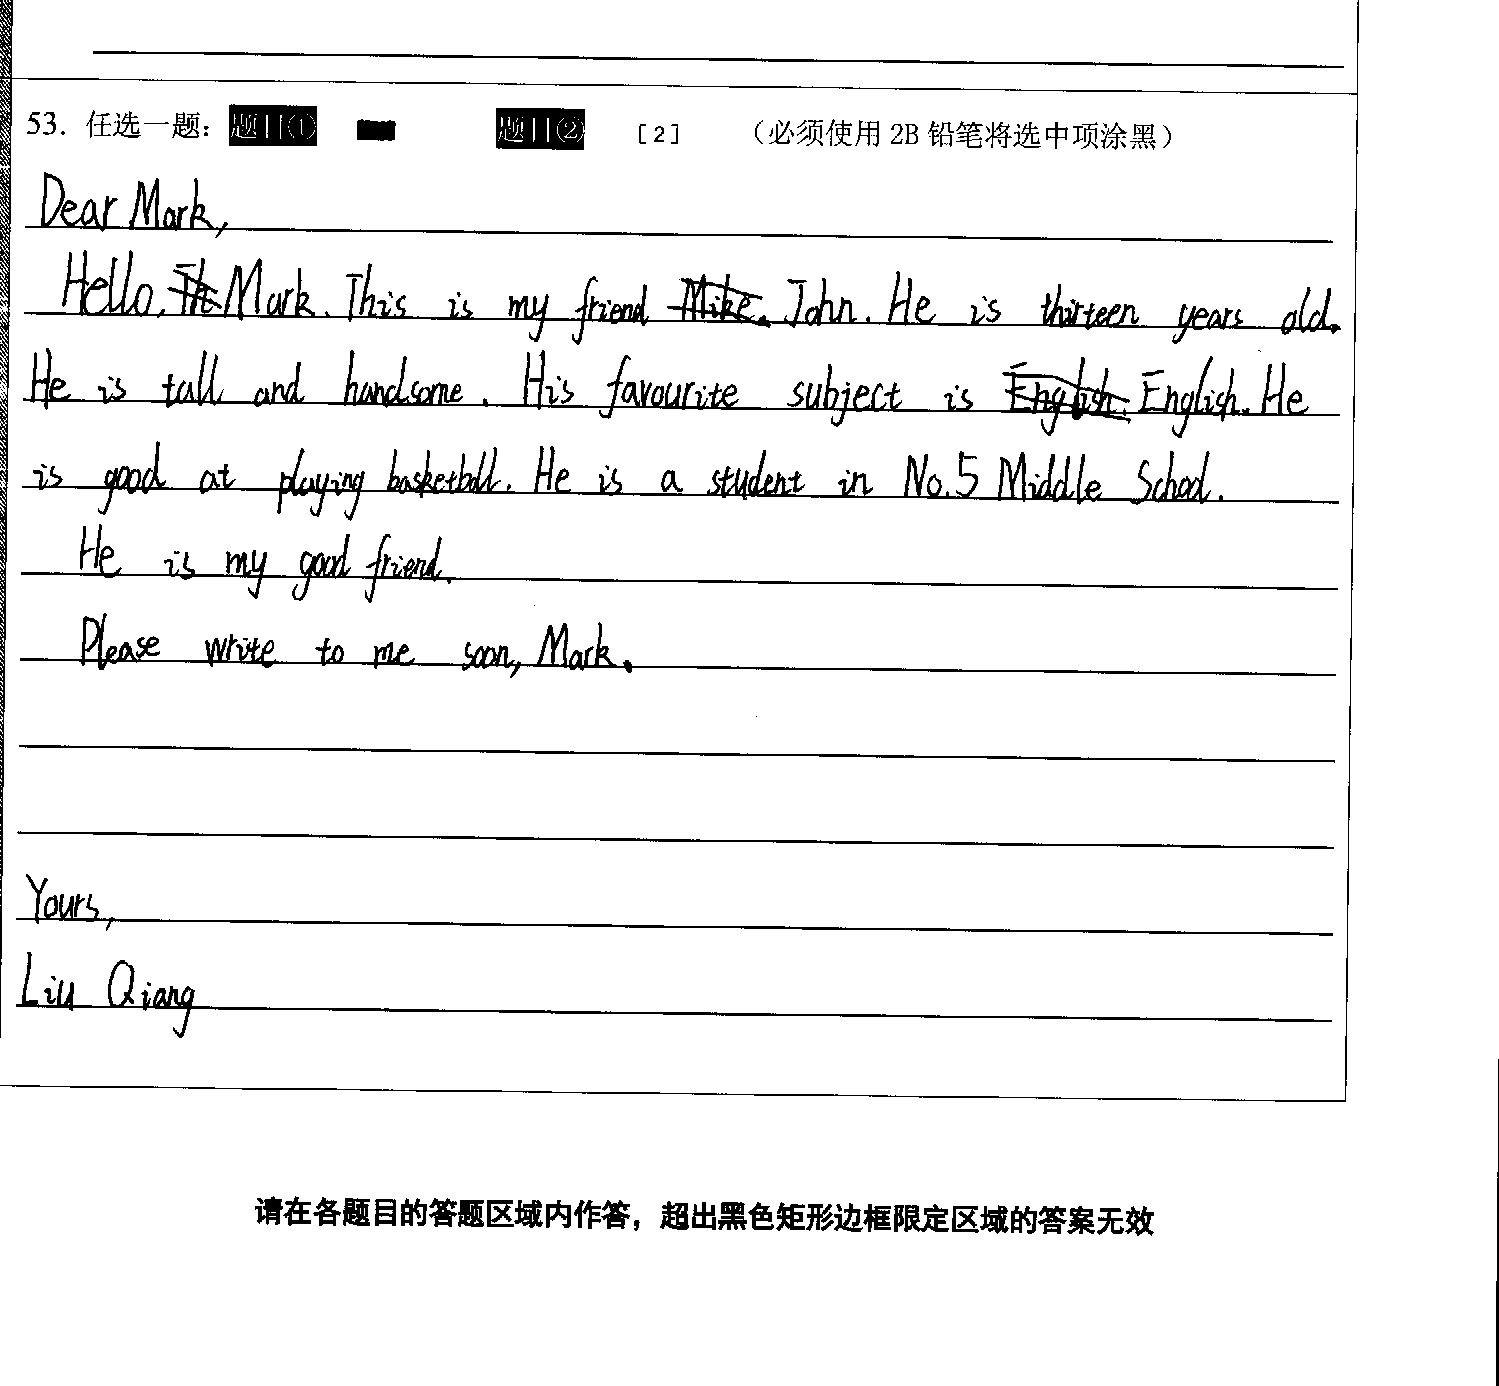 53. 任选一题： 题目① 题目② [2] （必须使用 2B 铅笔将选中项涂黑）
Dear Mark,
Hello, Mark. This is my friend John. He is thirteen years old.
He is tall and handsome. His favourite subject is English. He
is good at playing basketball. He is a student in No.5 Middle School.
He is my good friend.
Please write to me soon, Mark.
Yours,
Liu Qiang
请在各题目的答题区域内作答，超出黑色矩形边框限定区域的答案无效